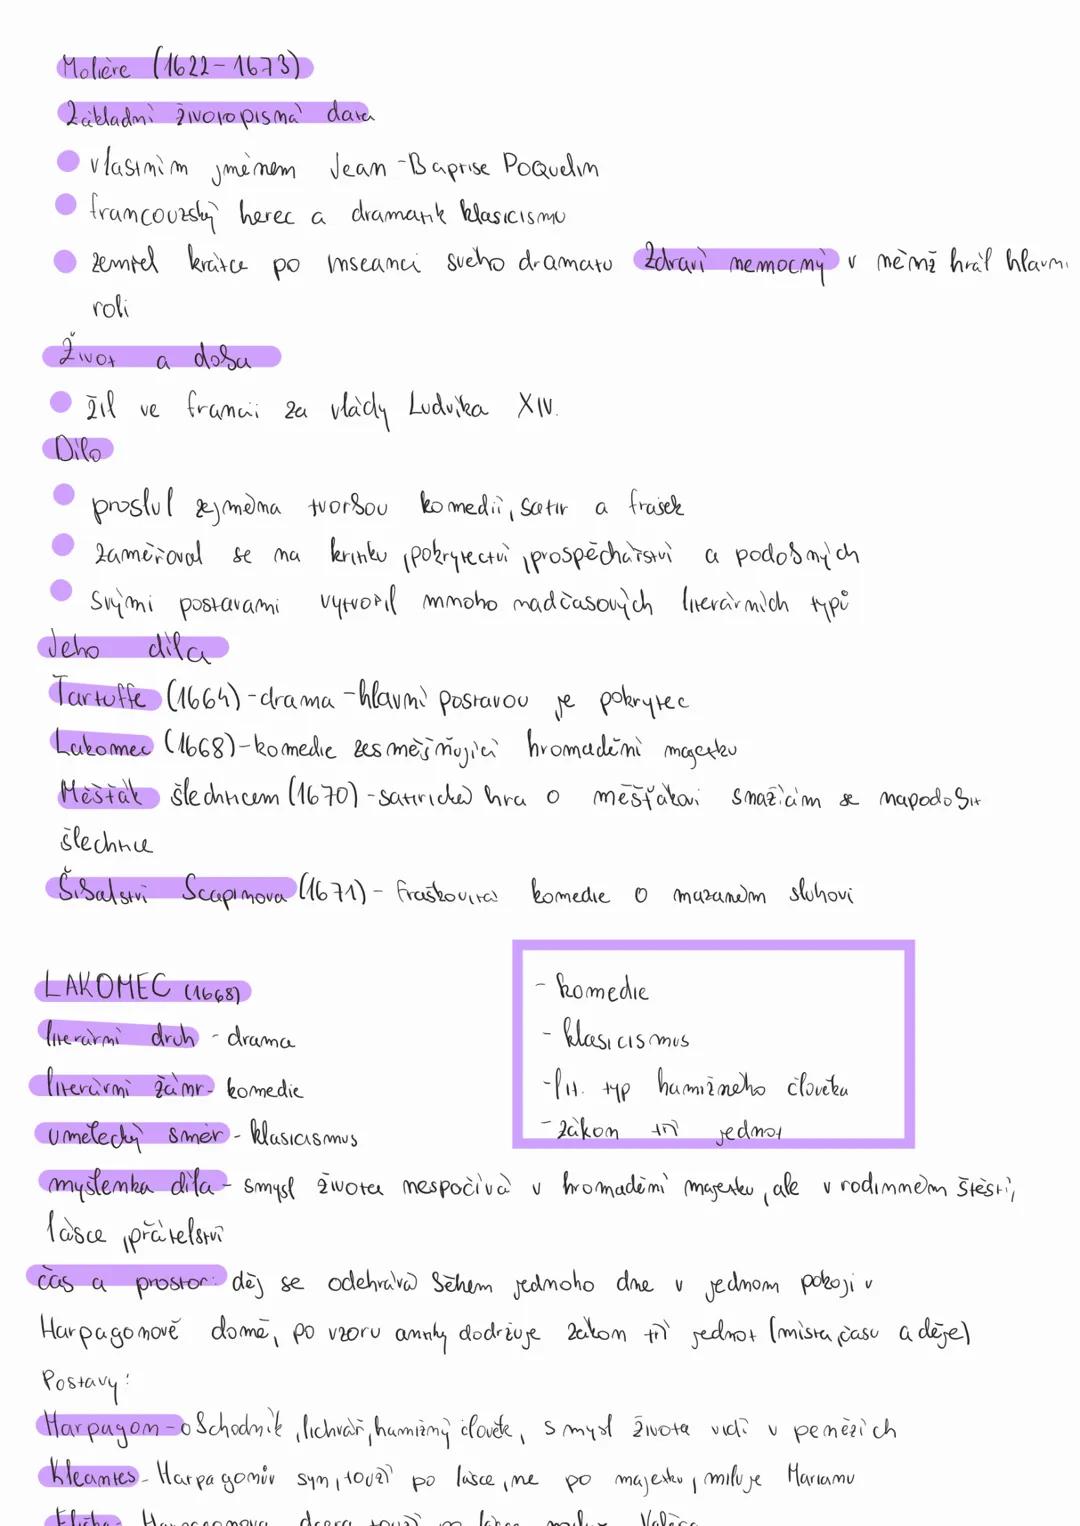 Molière (1622-1673)
Základní životopisná data
vlastním jménem Jean-Baptise Poquelin
francouzský herec a dramatik klasicismu
zemřel krátce po inscenaci svého dramatu Zdraví nemocný v němž hrál hlavní
roli
Život a doba
žil ve francii za vlády Ludvíka XIV.
Dílo
proslul zejména tvorbou komedií, satir a frašek
zaměřoval se na kritiku, pokrytectví, prospěchářství a podobných
Svými postavami vytvořil mnoho nadčasových literárních typů
Jeho díla
Tartuffe (1664) - drama - hlavní postavou je pokrytec
Lakomec (1668) - komedie zesměšňující hromadění majetku
Měšťák šlechticem (1670) - satirická hra o měšťákovi snažícím se napodobit
šlechtice
Šibalství Scapinova (1671) - fraškovitá komedie o mazaném sluhovi
LAKOMEC (1668)
literární druh - drama
literární žánr - komedie
umělecký směr - klasicismus
- komedie
- klasicismus
- lit. typ hamižného člověka
- zákon tří jednot
myšlenka díla - smysl života nespočívá v hromadění majetku, ale v rodinném štěstí,
lásce, přátelství
čas a prostor: děj se odehrává během jednoho dne v jednom pokoji v
Harpagonově domě, po vzoru antiky dodržuje zákon tří jednot (místa, času a děje)
Postavy:
Harpagon - obchodník, lichvář, hamižný člověk, smysl života vidí v penězích
Kleantes - Harpagonův syn, touží po lásce, ne po majetku, miluje Marianu